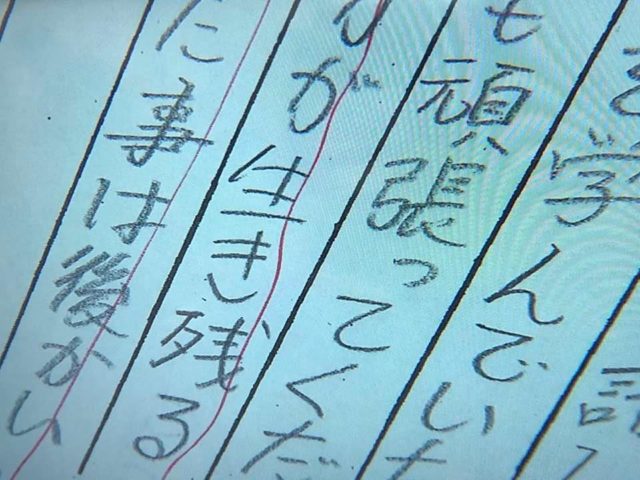 学んでいた
も頑張ってくだ
が生き残る
た事は後か